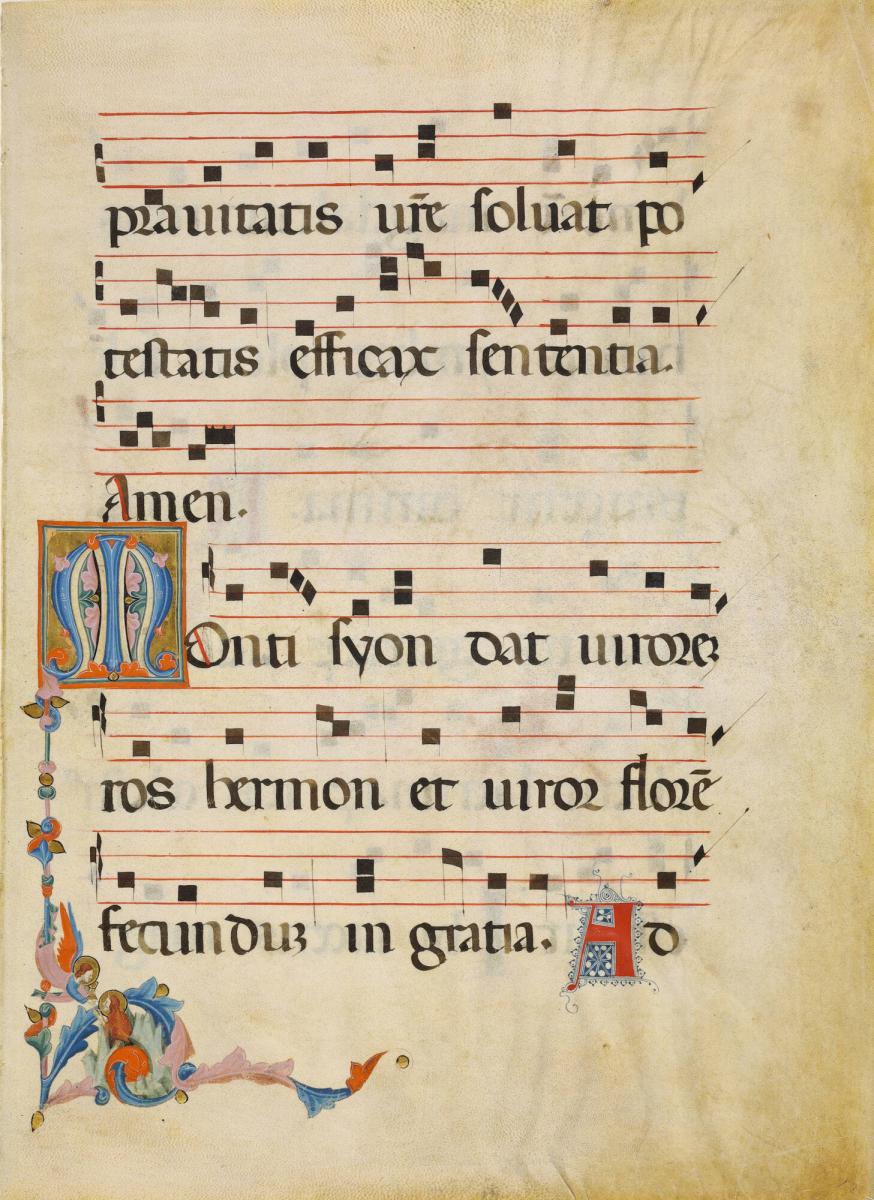 prauitatis ur̄e soluat po
testatis efficax sententia.
Amen.
MOnti syon dat uirorē
ros hermon et uiror florē
fecunduȝ in gratia. Ad